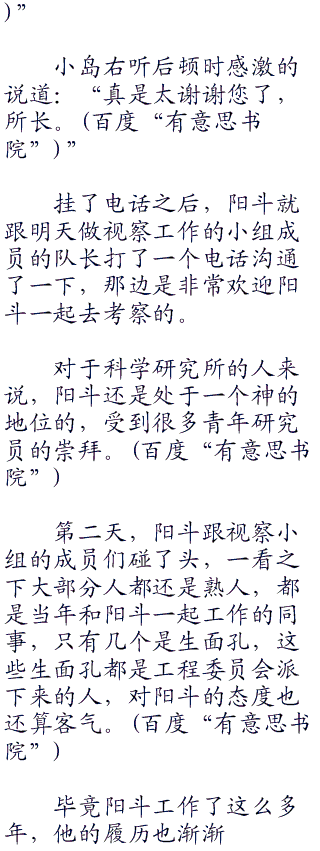 )”
小岛右听后顿时感激的
说道：“真是太谢谢您了，
所长。(百度“有意思书
院”)”
挂了电话之后，阳斗就
跟明天做视察工作的小组成
员的队长打了一个电话沟通
了一下，那边是非常欢迎阳
斗一起去考察的。
对于科学研究所的人来
说，阳斗还是处于一个神的
地位的，受到很多青年研究
员的崇拜。(百度“有意思书
院”)
第二天，阳斗跟视察小
组的成员们碰了头，一看之
下大部分人都还是熟人，都
是当年和阳斗一起工作的同
事，只有几个是生面孔，这
些生面孔都是工程委员会派
下来的人，对阳斗的态度也
还算客气。(百度“有意思书
院”)
毕竟阳斗工作了这么多
年，他的履历也渐渐